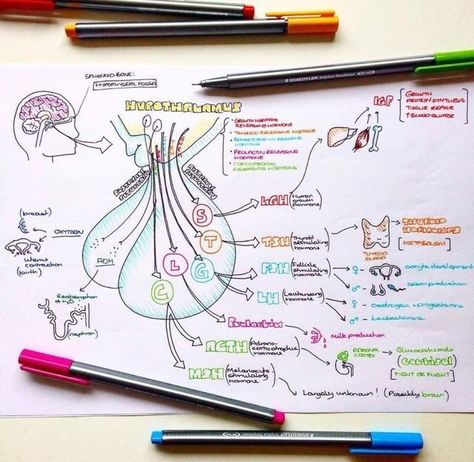 STAEDTLER
SPHENOID BONE:
HYPOPHYSEAL FOSSA
HYPOTHALAMUS
• GROWTH HORMONE
RELEASING HORMONE
• THYROID RELEASING HORMONE
HORMONE
• PROLACTIN RELEASING
HORMONE
RELEASING HORMONE
IGF
GROWTH
PROTEIN SYNTHESIS
TISSUE REPAIR
↑ BLOOD GLUCOSE
S
T
G
L
C
HGH
(Human
growth
hormone)
TSH
(Thyroid
stimulating
hormone)
THYROID
GLAND
THYROID
HORMONES
METABOLISM
FSH
(Follicle
stimulating
hormone)
♀ - oocyte development
♂ - sperm production
LH
(Luteinising
hormone)
♀ - Oestrogen + progesterone
♂ - testosterone
Prolactin
milk production
ACTH
(Adreno-
corticotrophic
hormone)
ADRENAL
CORTEX
Glucocorticoids
Cortisol
FIGHT OR FLIGHT
MSH
(Melanocyte
stimulating
hormone)
Largely unknown! (Possibly brain)
(breast)
OXYTOCIN
uterus
contraction
(birth)
ADH
Reabsorption
of H2O
nephron